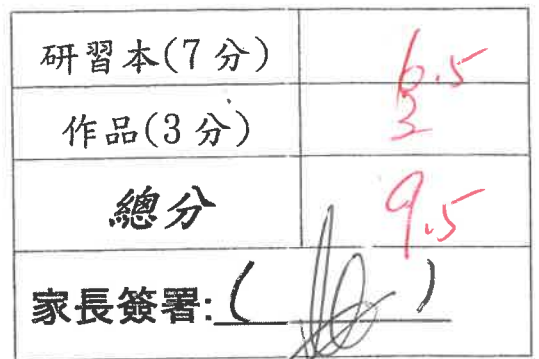 研習本(7分) 6.5
作品(3分) 3
總分 9.5
家長簽署:( )